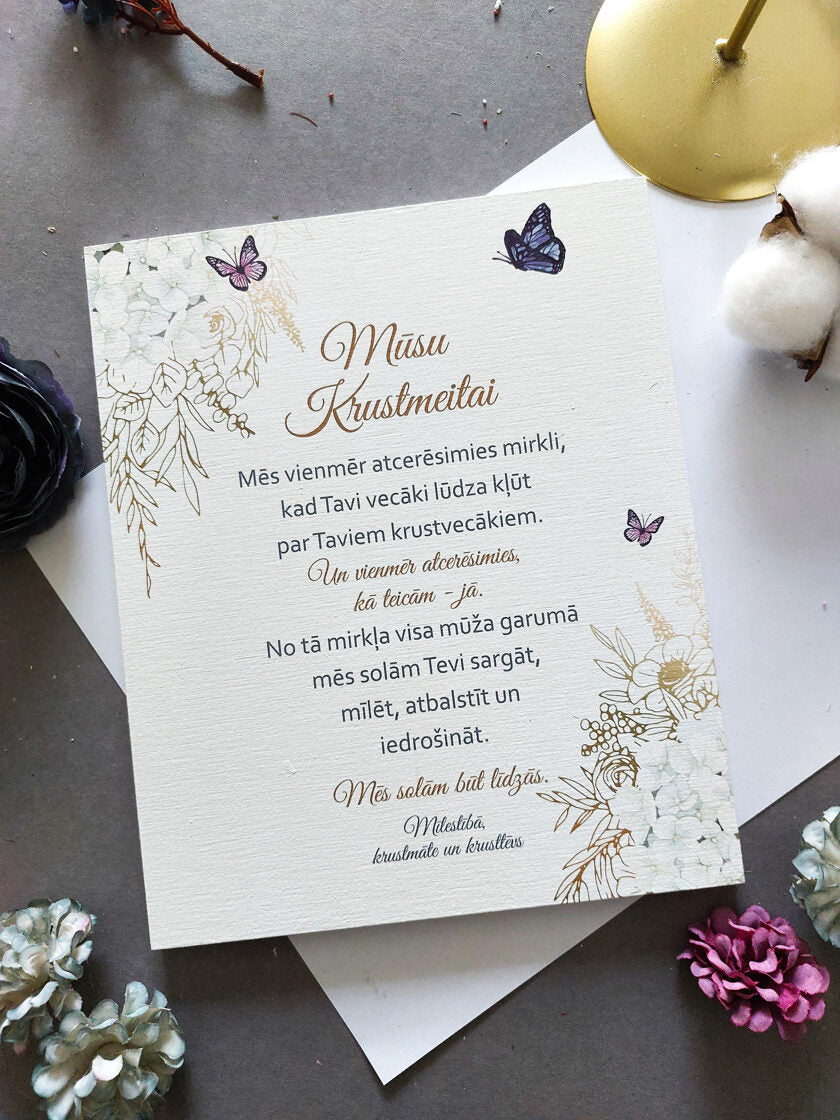 Mūsu
Krustmeitai
Mēs vienmēr atcerēsimies mirkli,
kad Tavi vecāki lūdza kļūt
par Taviem krustvecākiem.
Un vienmēr atcerēsimies,
kā teicām - jā.
No tā mirkļa visa mūža garumā
mēs solām Tevi sargāt,
mīlēt, atbalstīt un
iedrošināt.
Mēs solām būt līdzās.
Mīlestībā,
krustmāte un krusttēvs